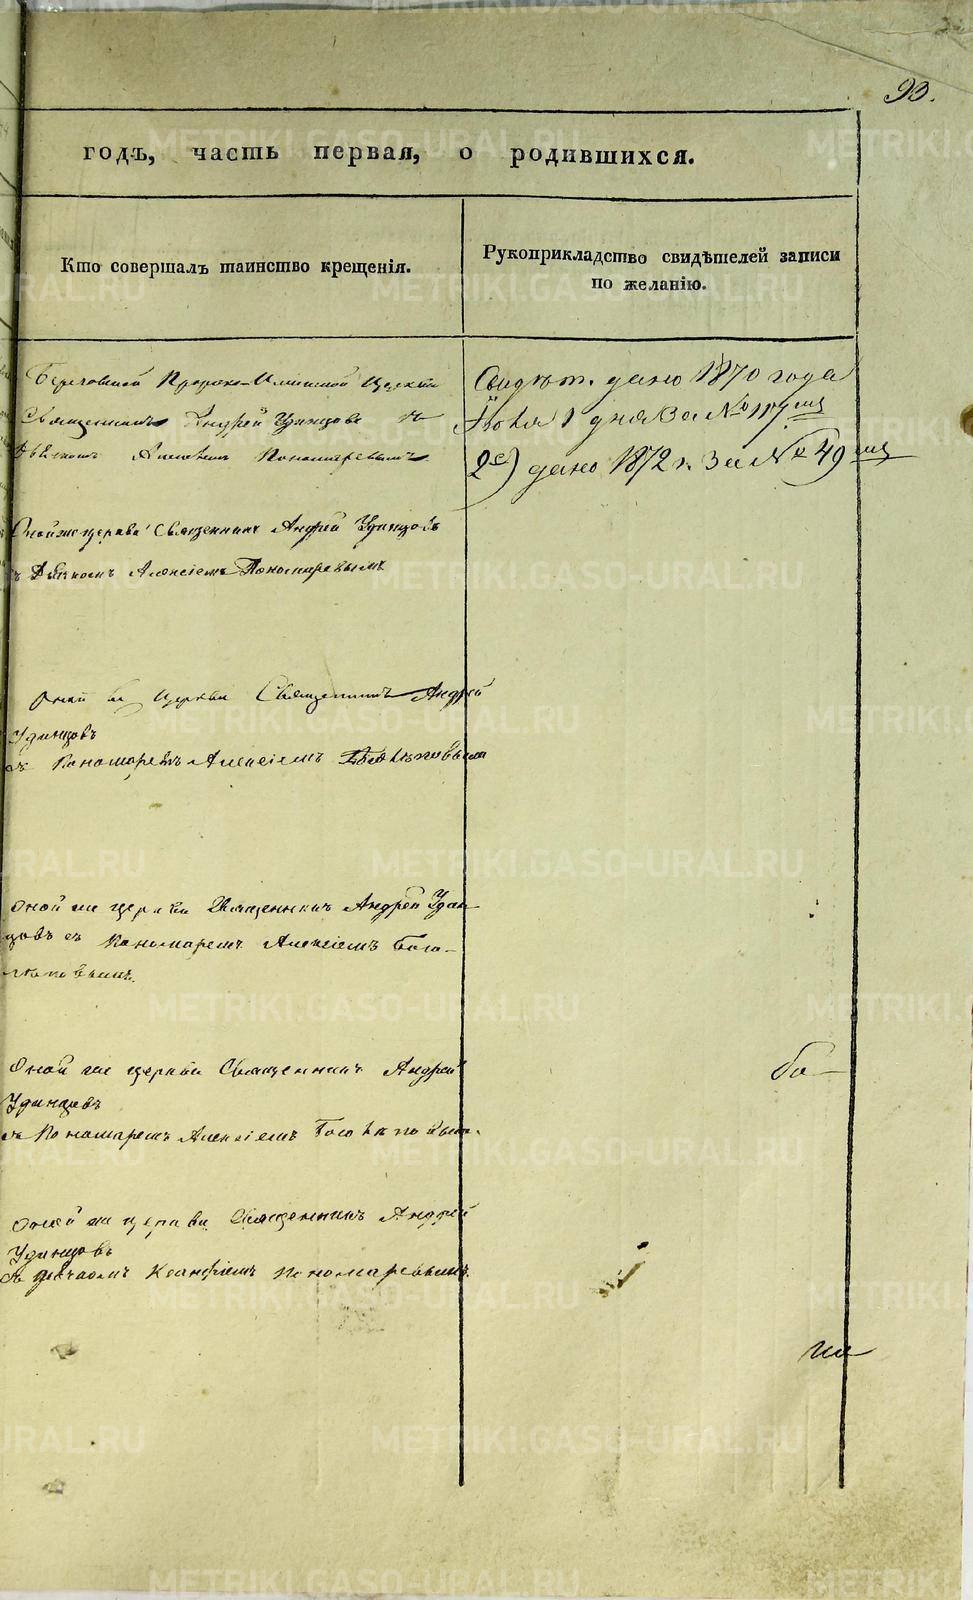 93.
годъ, часть первая, о родившихся.
Кто совершалъ таинство крещенія.
Рукоприкладство свидѣтелей записи
по желанію.
Пророко-Илинской Церкви
Священникъ Андрей Удинцовъ съ
Алексѣемъ Пономаревымъ
Свидѣт. дано 1870 года
1 дня за №
2е) дано 1872 г. за № 49
Оной же церкви Священникъ Андрей Удинцовъ
съ Дьячкомъ Алексіемъ Пономаревымъ
Оной же Церкви Священникъ Андрей
Удинцовъ
съ Пономаремъ Алексіемъ
Оной же церкви Священникъ Андрей Удин-
цовъ съ Пономаремъ Алексіемъ
Оной же церкви Священникъ Андрей
Удинцовъ
съ Пономаремъ Алексіемъ
Оной же церкви Священникъ Андрей
Удинцовъ
съ дьячкомъ Пономаревымъ
METRIKI.GASO-URAL.RU